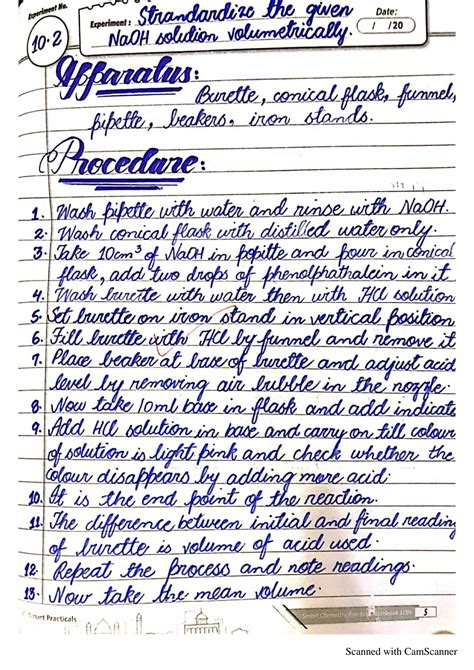 Experiment No.
10.2
Experiment: Strandardize the given
NaOH solution volumetrically.
Date:
/ /20
Apparatus:
Burette, conical flask, funnel,
pipette, beakers, iron stands.
Procedure:
1. Wash pipette with water and rinse with NaOH.
2. Wash conical flask with distilled water only.
3. Take 10cm³ of NaOH in popitte and pour in conical
flask, add two drops of phenolphathalein in it
4. Wash burette with water then with HCl solution
5. Set burette on iron stand in vertical position
6. Fill burette with HCl by funnel and remove it
7. Place beaker at base of burette and adjust acid
level by removing air bubble in the nozzle.
8. Now take 10ml base in flask and add indicate
9. Add HCl solution in base and carry on till colour
of solution is light pink and check whether the
colour disappears by adding more acid.
10. It is the end point of the reaction.
11. The difference between initial and final reading
of burette is volume of acid used.
12. Repeat the process and note readings.
13. Now take the mean volume.
Smart Practicals
Smart Chemistry Practical Notebook 10th
5
Scanned with CamScanner